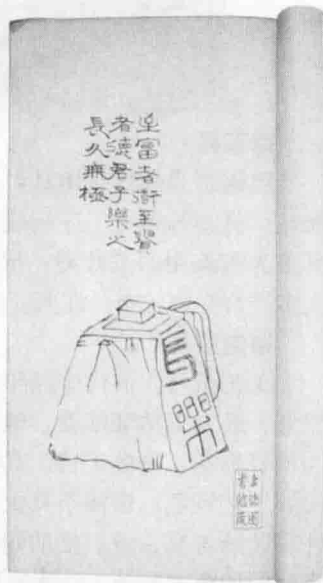 至富者至賢
者德君子樂之
長久無極
長樂
上海圖
書館藏